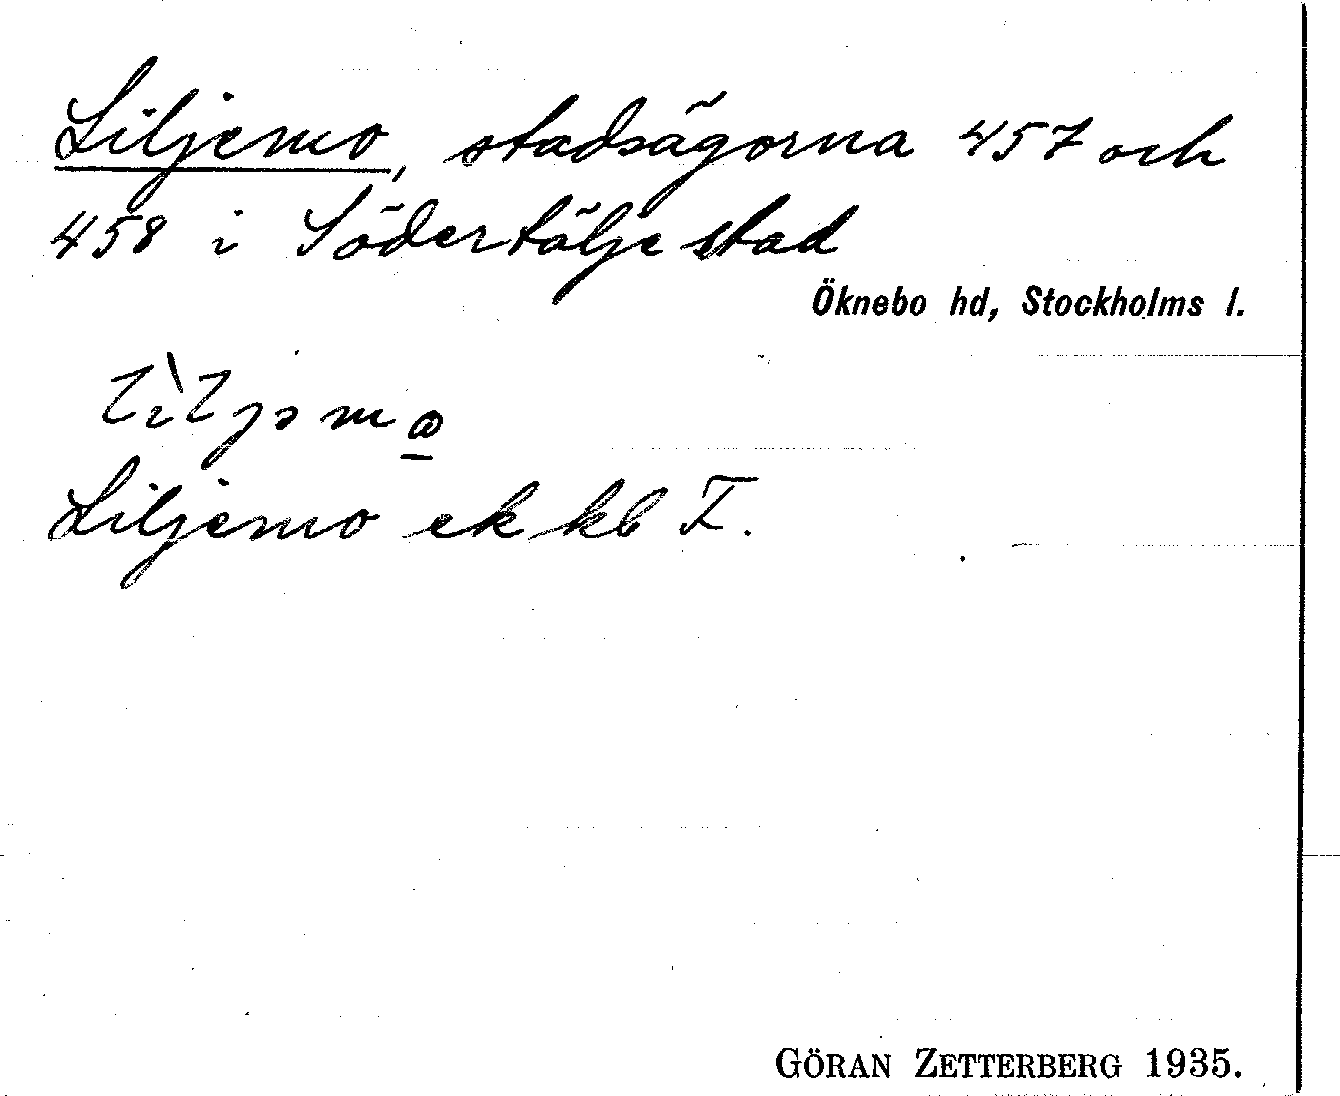 Liljemo, stadsägorna 457 och
458 i Södertälje stad
Öknebo hd, Stockholms l.
Liljemo ek kb I.
GÖRAN ZETTERBERG 1935.